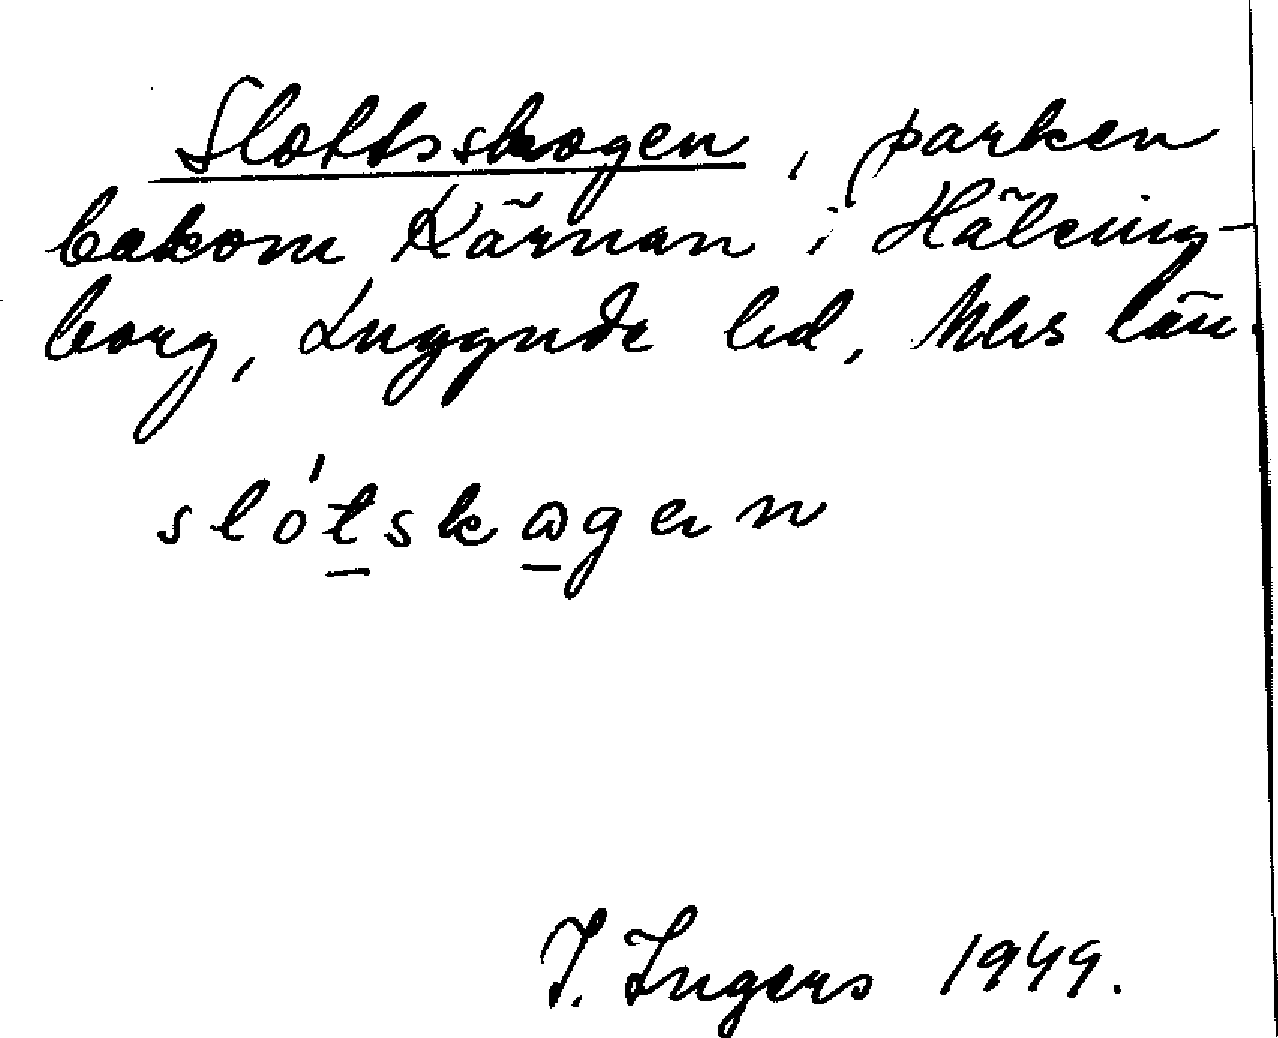 Slottsskogen, parken
bakom Kärnan i Hälsing-
borg, Luggude hd, Mhs län.
slótskωgən
I. Ingers 1949.